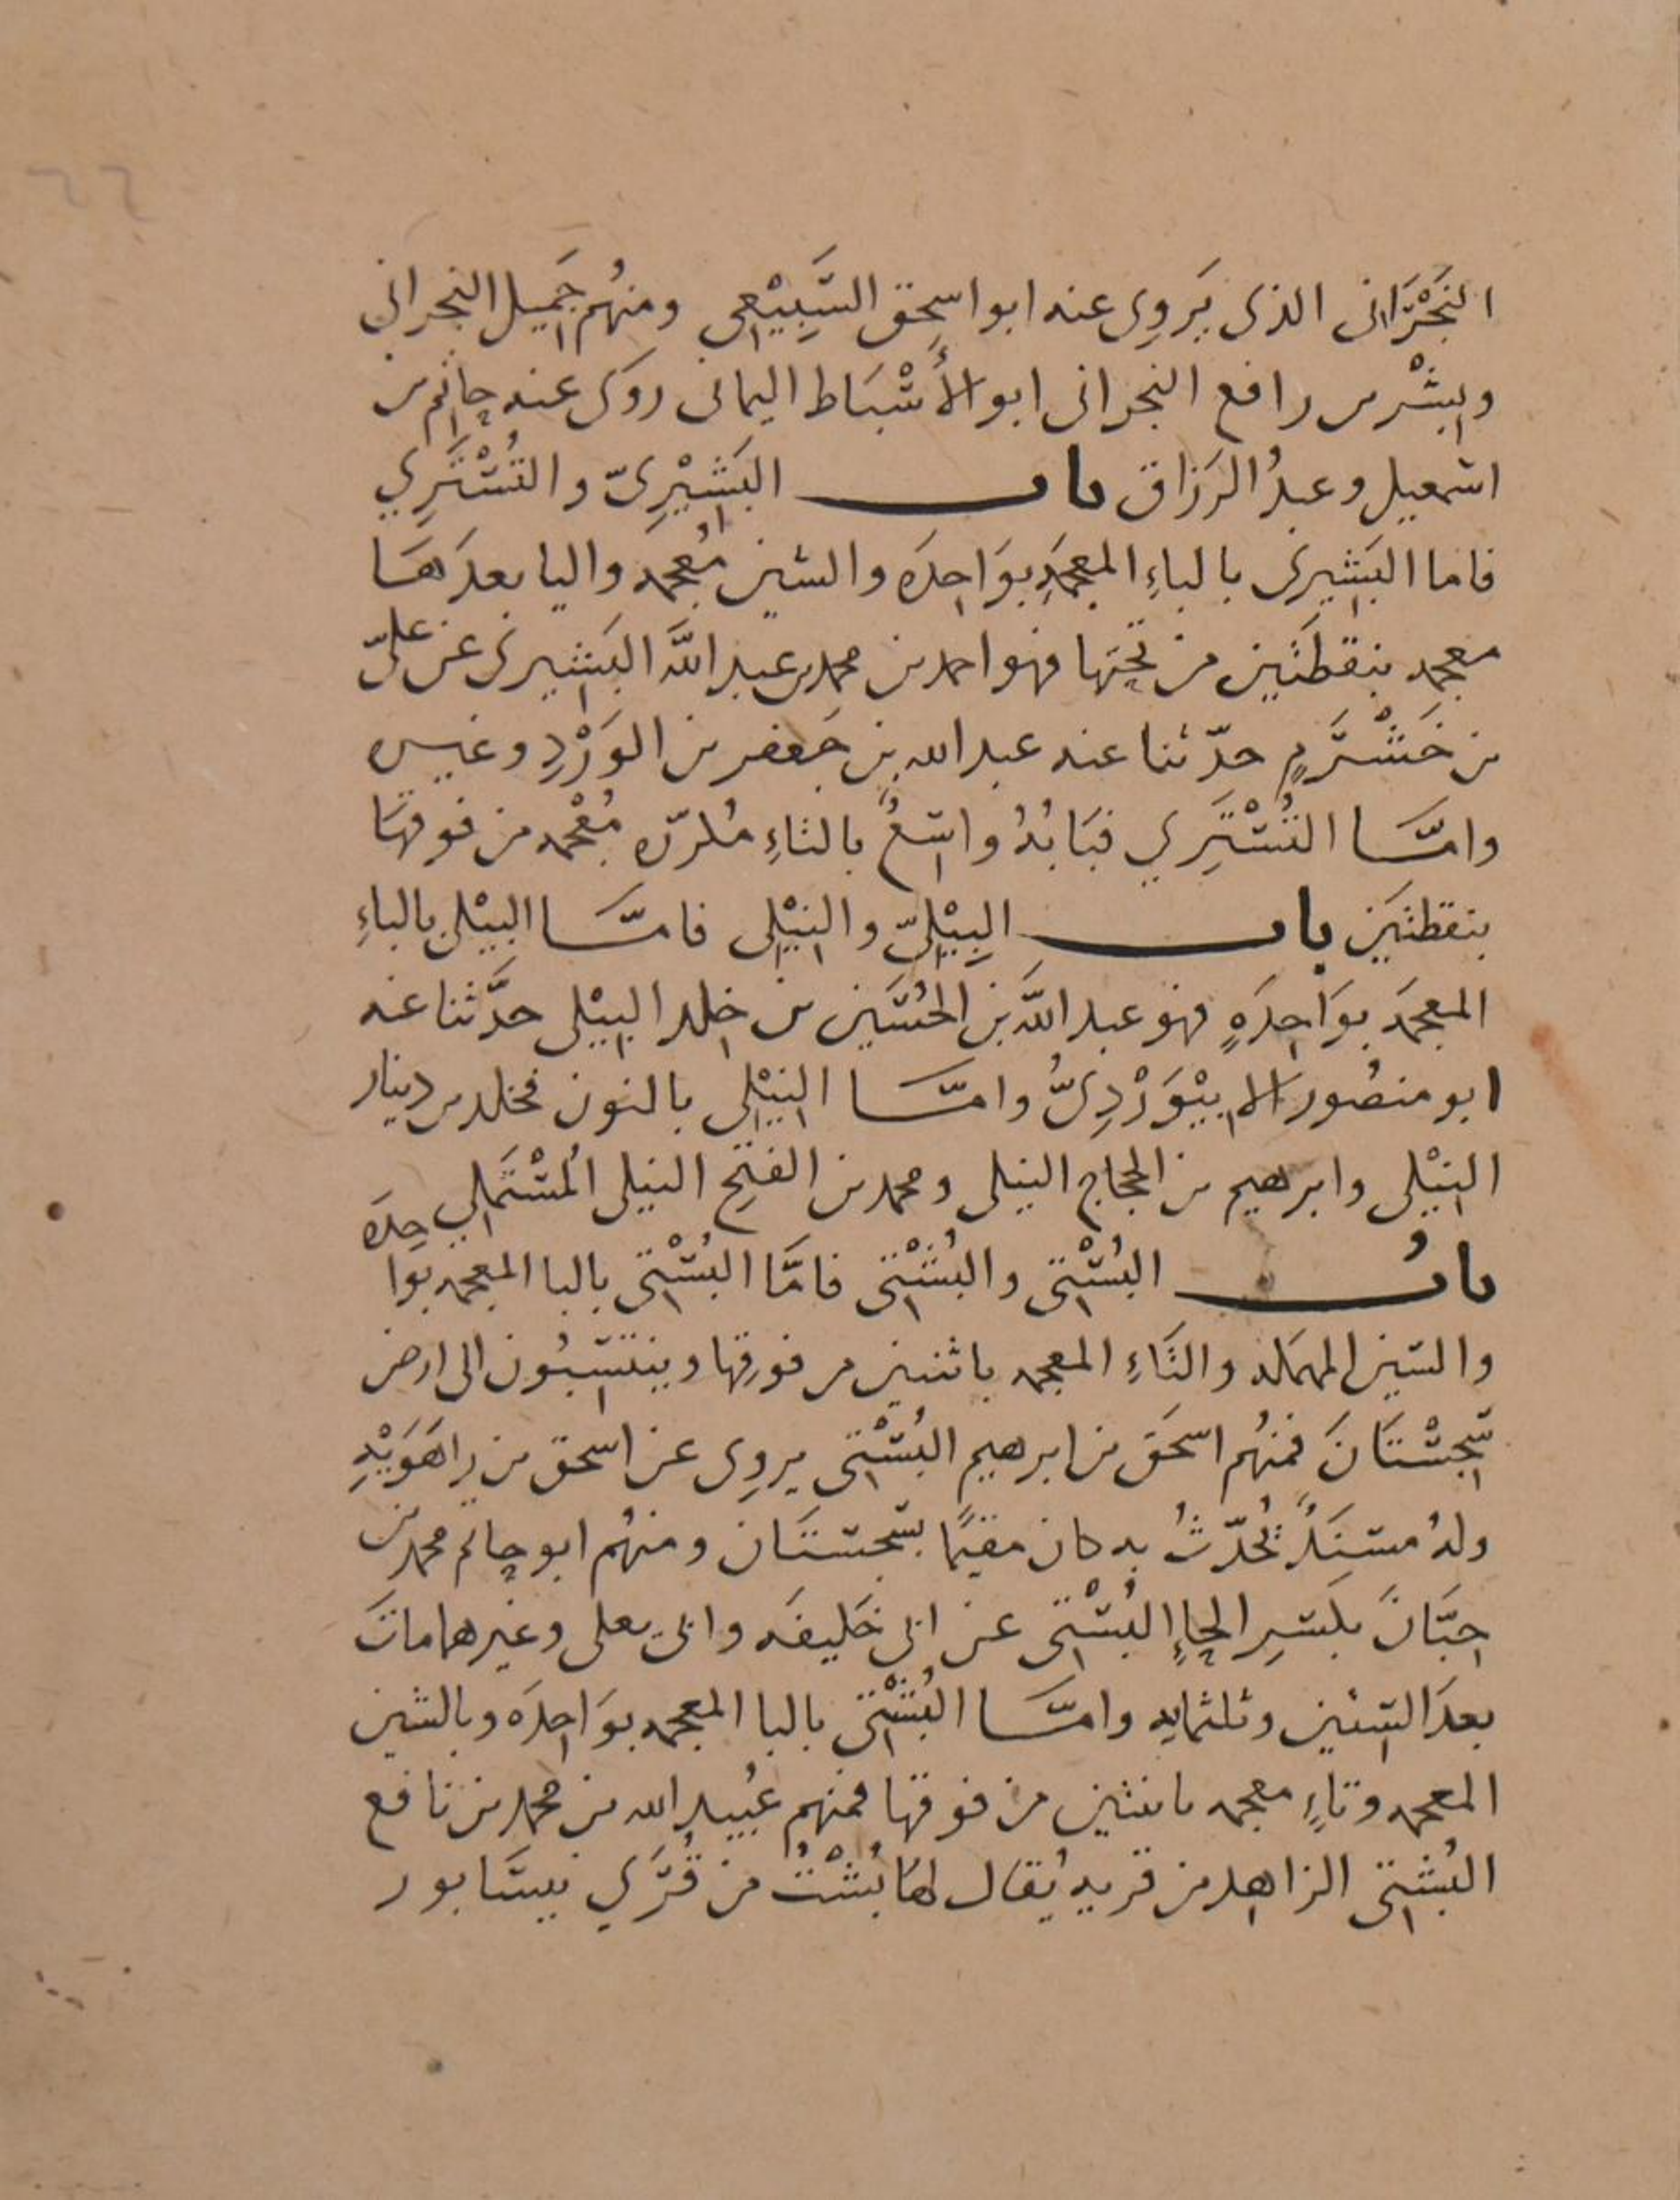 ٦٦
النَجْرَانى الذى يَروِى عنه ابو اسحق السَّبِيْعى ومنهُم جَميل النجرانى
وبِشْر بن رافع النجرانى ابو الأَسْبَاط اليمانى روى عنه حاتم بن
اسمعيل وعبدُ الرَزاق باب البَشِيْرِىّ والتُسْتَرِي
فاما البَشِيرى بالباءِ المعجمَهِ بوَاحِدَه والشين مُعجمه واليا بعدَهَا
معجمه بنقطتَين من تحتها فهو احمد بن محمد بن عبد اللَّه البَشِيرى عن علىّ
بن خَشْرَمٍ حدّثنا عنه عبد الله بن جَعفر بن الوَرْدِ وغيره
وامَّا التُسْتَرِي فبَابُهُ واسعٌ بالتاءِ مكررّه مُعْجمه من فوقهَا
بنقطتَين باب البِيْلِىّ والنِيْلِى فامَّا البِيْلى بالباءِ
المعجمَه بوَاحِدَهٍ فهو عبد اللَّه بن الحُسَين بن خلد البِيْلى حدَّثنا عنه
ابو منصُور الابِيْوَرْدِىُّ وامَّا النِيْلِى بالنون فخلد بن دينار
النِيْلى وابرهيم بن الحجاج النيلى ومحمد بن الفتح النيلى المُسْتَملِي
بابُ البُسْتِى والبُشْتِى فامَّا البُسْتِى بالبا المعجمه بواحِدَه
والسين المهمَله والتَاءِ المعجمه باثنين من فوقِها وينتسِبُون الى ارض
سِجِسْتَانَ فمنهُم اسحَق بن ابرهيم البُسْتِى يروِى عن اسحق بن رَاهَوَيْهِ
ولهُ مسنَدٌ يُحدّثُ به كان مقيمًا بسجستَان ومنهُم ابو حاتم محمد بن
حِبّانَ بكَسرِ الحاءِ البُسْتِى عن ابى خَليفَه وابى يعلى وغيرهما ماتَ
بعدَ الستين وثلثمايه وامَّا البُشْتِى بالبا المعجمه بوَاحِدَه وبالشين
المعجمه وتاءٍ معجمه باثنتين من فوقها فمنهم عُبيد الله بن محمد بن نافع
البُشْتِى الزاهد من قريه يُقَال لهَا بُشْتُ من قُرَي نيسَابور